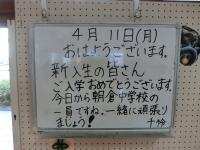 4月11日(月)
おはようございます。
新入生の皆さん
ご入学おめでとうございます。
今日から朝倉中学校の
一員ですね。一緒に頑張り
ましょう!